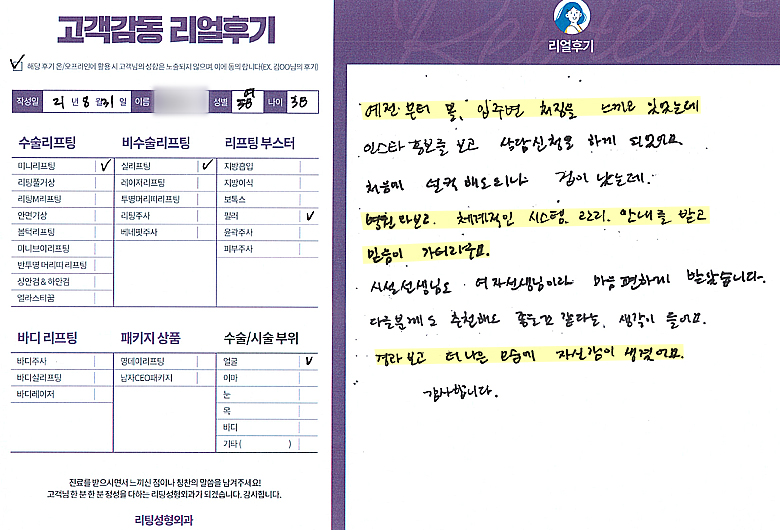 고객감동 리얼후기
해당 후기 온/오프라인에 활용 시 고객님의 성함은 노출되지 않으며, 이에 동의 합니다(EX. 김OO님의 후기)
작성일 21 년 8 월 31 일 이름 성별 여 나이 38
수술리프팅 비수술리프팅 리프팅 부스터
미니리프팅 실리프팅 지방흡입
리팅풀거상 레이저리프팅 지방이식
리팅M리프팅 투명머리띠리프팅 보톡스
안면거상 리팅주사 필러
볼턱리프팅 베네핏주사 윤곽주사
미니브이리프팅 피부주사
반투명 머리띠 리프팅
상안검 & 하안검
엘라스티꿈
바디 리프팅 패키지 상품 수술/시술 부위
바디주사 명데이리프팅 얼굴
바디실리프팅 남자CEO패키지 이마
바디레이저 눈
목
바디
기타 ( )
진료를 받으시면서 느끼신 점이나 칭찬의 말씀을 남겨주세요!
고객님 한 분 한 분 정성을 다하는 리팅성형외과가 되겠습니다. 감사합니다.
리팅성형외과
리얼후기
예전부터 볼, 입주변 처짐을 느끼고 있었는데
인스타 홍보를 보고 상담신청을 하게 되었어요.
처음에 설치 해도되나 겁이 났는데.
병원 와보니. 체계적인 시스템, 관리. 안내를 받고
믿음이 가더라구요.
시술선생님도 여자선생님이라 마음 편하게 받았습니다.
다른분께도 추천해도 좋을꺼 같다는 생각이 들어요.
경과 보고 더 나은 모습에 자신감이 생겼어요.
감사합니다.